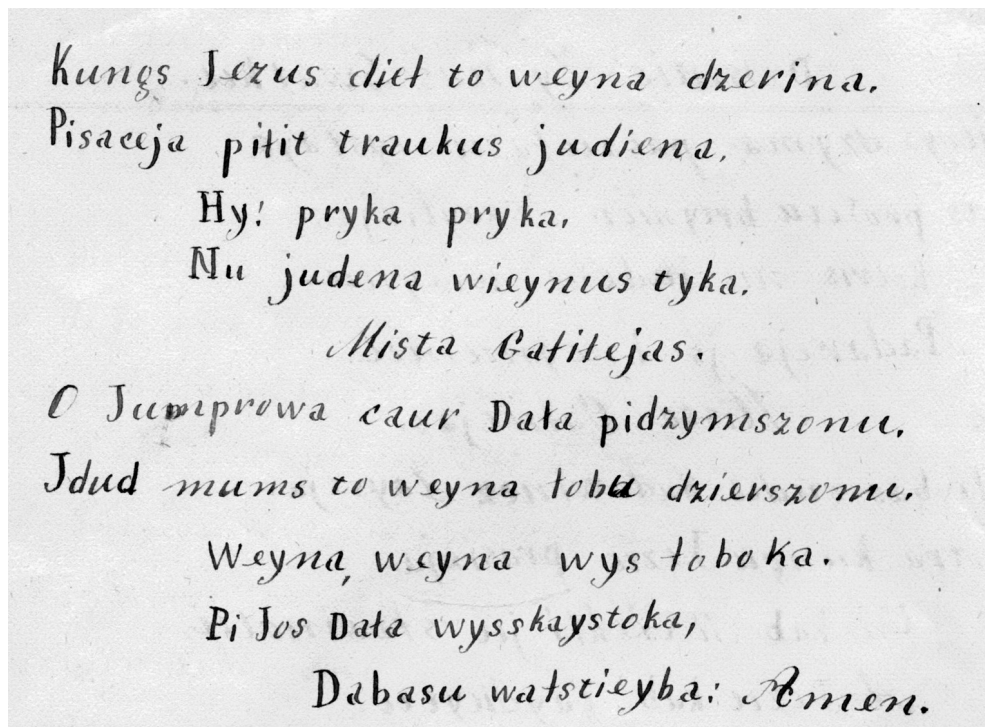 Kungs Jezus dieł to weyna dzerina.
Pisaceja piłit traukus judiena,
Hy! pryka pryka,
Nu judena wieynus tyka.
Mista Gałiłejas.
O Jumprowa caur Dała pidzymszonu.
Jdud mums to weyna łoba dzierszonu.
Weyna, weyna wys łoboka.
Pi Jos Dała wysskaystoka,
Dabasu wałstieyba: Amen.